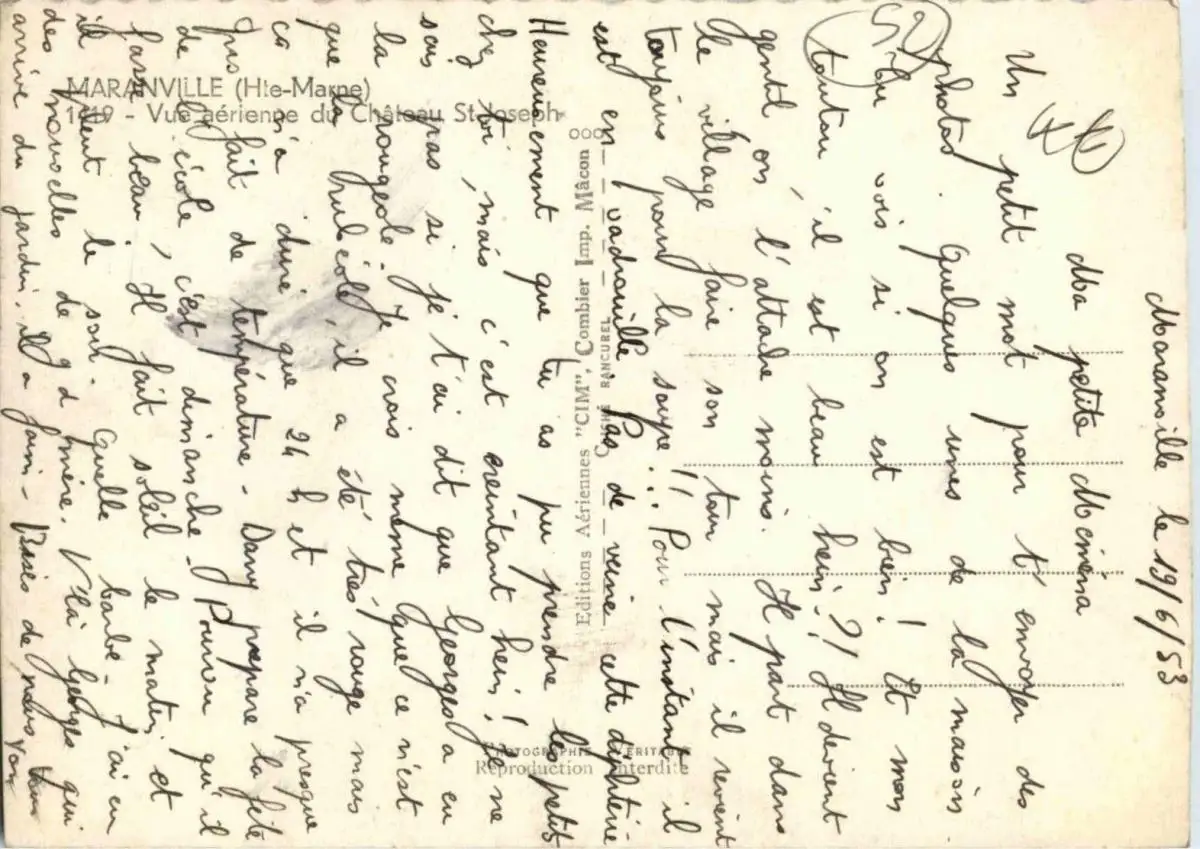 Maranville le 19/6/53
Ma petite Mémena
Un petit mot pour t'envoyer des
photos. Quelques unes de la maison
tu vois si on est bien! Et mon
toutou, il est beau hein?! Il devient
gentil on l'attache moins. Il part dans
le village faire son tour mais il revient
toujours pour la soupe!! Pour l'instant il
est en vadrouille. Pas de veine cette diphtérie
Heureusement que tu as pu prendre les petits
chez toi, mais c'est hein! Je ne
sais pas si je t'ai dit que Georges a eu
la rougeole. Je crois même que ce n'est
que la rubéole, il a été très rouge mais
ça n'a duré que 24 h et il n'a presque
pas fait de température - Dany prépare la fête
de l'école, c'est dimanche - Pourvu qu'il
fasse beau, Il fait soleil le matin et
il pleut le soir. Quelle barbe - J'ai eu
des nouvelles de gd mère. V'là Georges qui
arrive du jardin, il a faim - Bises de nous tous
MARANVILLE (Hte-Marne)
1419 - Vue aérienne du Château St-Joseph
Editions Aériennes "CIM", Combier Imp. Mâcon
CLICHÉ RANCUREL
PHOTOGRAPHIE VÉRITABLE
Reproduction interdite